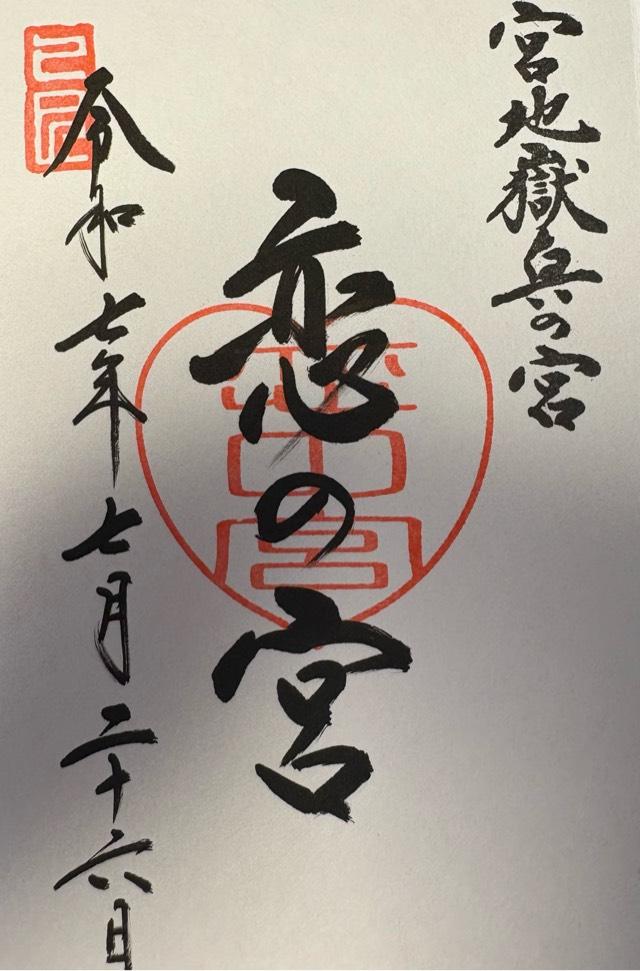 宮地嶽奥の宮
恋の宮
令和七年七月二十六日